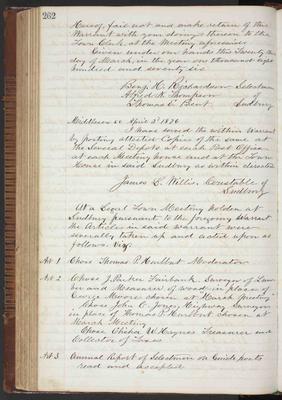 262
Hereof, fail not and make return of this
Warrant with your doings thereon to the
Town Clerk at the Meeting aforesaid
Given under our hands this Twenty
day of March, in the year one thousand eight
hundred and seventy six
Benj. H. Richardson Selectmen
Alfred N. Thompson of
Thomas E. Bent Sudbury
Middlesex ss April 3d 1876
I have served the within Warrant
by posting attested Copies of the same at
the Several Depots at each Post Office
at each Meeting house and at the Town
House in said Sudbury as within directed
James E. Willis, Constable of
Sudbury
At a Legal Town Meeting holden at
Sudbury pursuant to the foregoing Warrant
the Articles in said warrant were
severally taken up and acted upon as
follows. Viz.
Art 1 Chose Thomas P. Hurlbut Moderator
Art 2 Chose J. Parker Fairbank. Surveyor of Lum
ber and Measurer of Wood in place of
George Moore chosen at March Meeting
Chose John E. Jones, Highway Surveyor
in place of Thomas P. Hurlbut chosen at
March Meeting
Chose W. Haynes Treasurer and
Collector of Taxes
Art 3 Annual Report of Selectmen on Guide posts
read and accepted